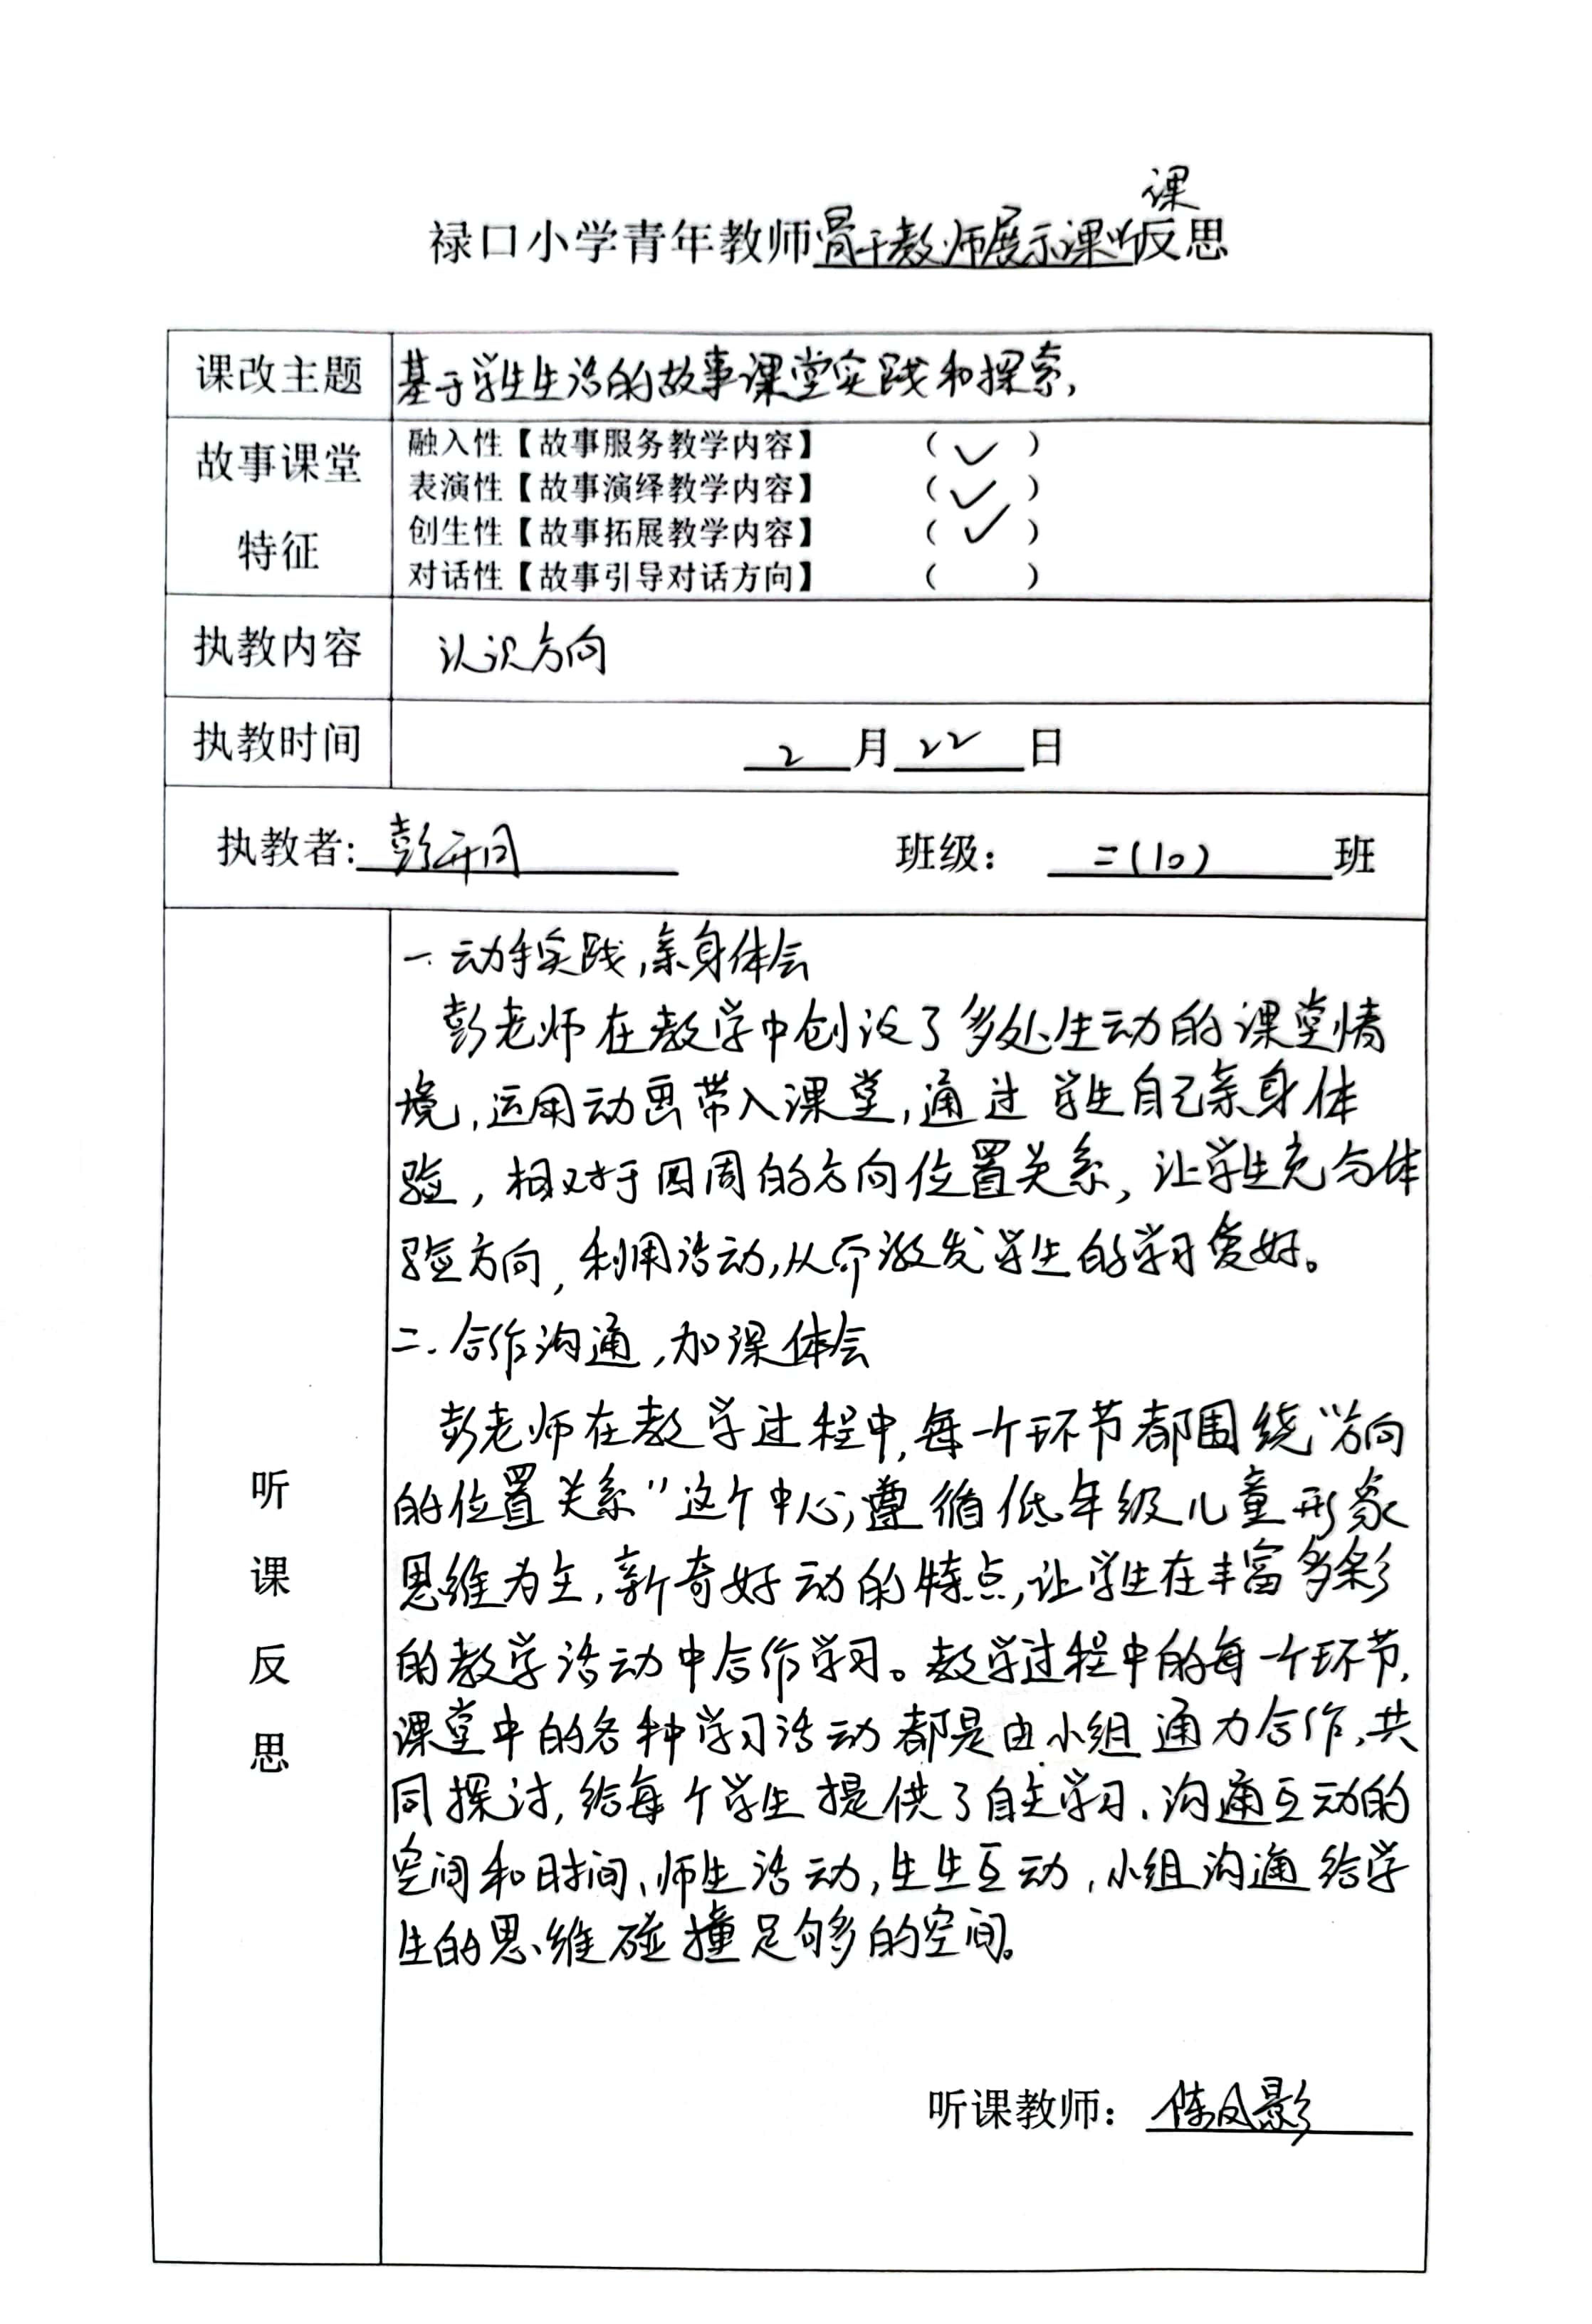 禄口小学青年教师骨干教师展示课听课反思
课改主题 基于学生生活的故事课堂实践和探索,
故事课堂特征
融入性【故事服务教学内容】 （ ✓ ）
表演性【故事演绎教学内容】 （ ✓ ）
创生性【故事拓展教学内容】 （ ✓ ）
对话性【故事引导对话方向】 （ ）
执教内容 认识方向
执教时间 2 月 22 日
执教者: 彭开同 班级: 二(10) 班
听课反思
一.动手实践,亲身体会
彭老师在教学中创设了多处生动的课堂情
境,运用动画带入课堂,通过学生自己亲身体
验,相对于四周的方向位置关系,让学生充分体
验方向,利用活动,从而激发学生的学习爱好。
二.合作沟通,加深体会
彭老师在教学过程中,每一个环节都围绕"方向
的位置关系"这个中心,遵循低年级儿童形象
思维为主,新奇好动的特点,让学生在丰富多彩
的教学活动中合作学习。教学过程中的每一个环节,
课堂中的各种学习活动都是由小组通力合作,共
同探讨,给每个学生提供了自主学习、沟通互动的
空间和时间,师生活动,生生互动,小组沟通给学
生的思维碰撞足够多的空间。
听课教师: 陈凤影